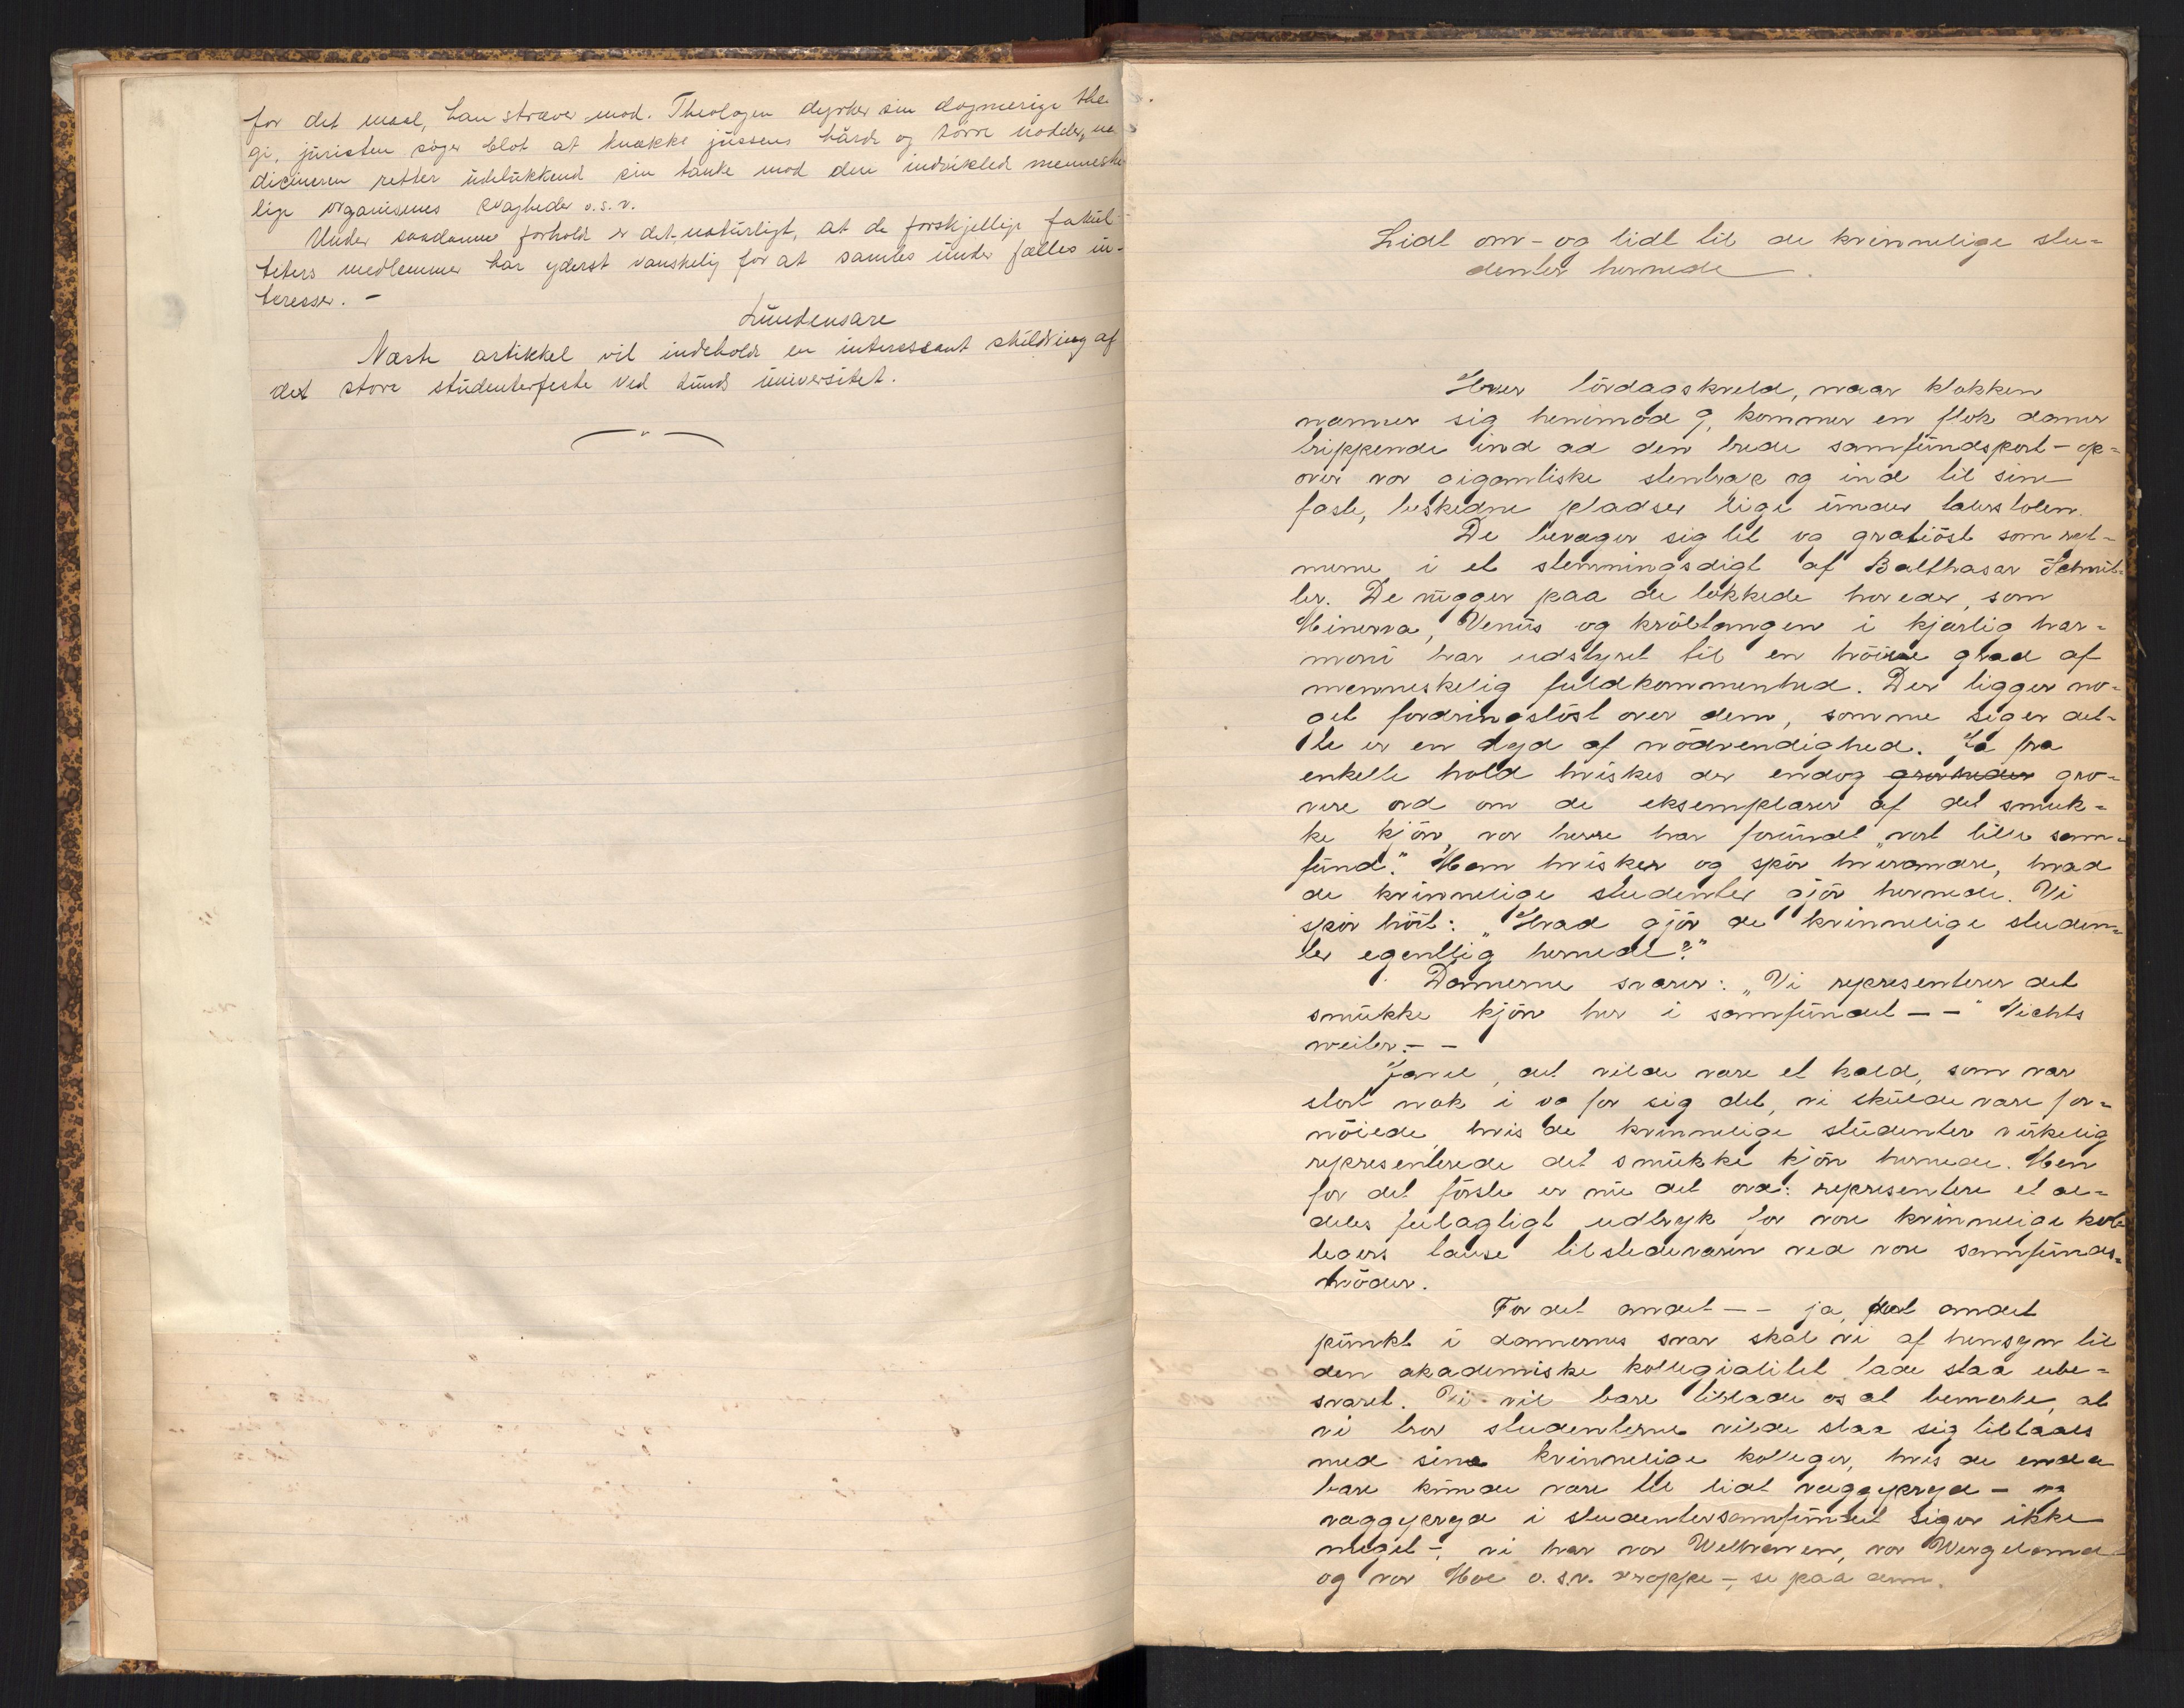 for det maal, han stræver mod. Theologen dyrker sin dogmerige theo-
gi, juristen søger blot at knække jussens hårde og tørre nødder, me-
dicineren retter udelukkend sin tanke mod den indviklede menneske-
lige organismes svagheder o.s.v.
Under saadanne forhold er det naturligt, at de forskjellige fakul-
teters medlemmer har yderst vanskelig for at samles under fælles in-
teresser. –
Lundensare
Næste artikkel vil indeholde en interessant skildring af
det store studenterfeste ved Lunds universitet.
Lidt om – og lidt til de kvinnelige stu=
denter hernede.
Hver lördagskveld, naar klokken
nærmer sig henimod 9, kommer en flok damer
trippende ind ad den brede samfundsport – op=
over vor gigantiske stentrap og ind til sine
faste, beskedne pladser lige under talerstolen.
De bevæger sig let og gratiöst som ryt=
merne i et stemningsdigt af Balthasar Schnit=
ler. De vugger paa de lokkede hoveder, som
Minerva, Venus og kröltangen i kjærlig har=
moni har udstyret til en höiere grad af
menneskelig fuldkommenhed. Der ligger no=
get fordringslöst over dem, somme siger det=
te er en dyd af nödvendighed. Ja fra
enkelte hold hviskes der endog grovheder gro=
vere ord om de eksemplarer af det smuk=
ke kjön, vor herre har forundt „vort lille sam=
fund." Man hvisker og spör hverandre, hvad
de kvinnelige studenter gjör hernede. Vi
spör höit: „Hvad gjör de kvinnelige studen=
ter egentlig hernede?"
Damerne svarer: „Vi representerer det
smukke kjön her i samfundet – –" Nichts
weiter. – –
Javel, det vilde være et kald, som var
stort nok i og for sig det, vi skulde være for=
nöiede, hvis de kvinnelige studenter virkelig
representerede det smukke kjön hernede. Men
for det förste er nu det ord: representere et al=
deles feilagtigt udtryk for vore kvinnelige kol=
legers tause tilstedeværen ved vore samfunds=
möder.
For det andet – – ja, det andet
punkt i damernes svar skal vi af hensyn til
den akademiske kollegialitet lade staa ube=
svaret. Vi vil bare tillade os at bemerke, at
vi tror studenterne vilde slaa sig tiltaals
med sine kvinnelige kolleger, hvis de enda
bare kunde være lit lidt væggepryd – og
væggepryd i studentersamfundet siger ikke
meget –, vi har vor Welhaven, vor Wergeland
og vor Moe o.s.v. deroppe –, se paa dem.